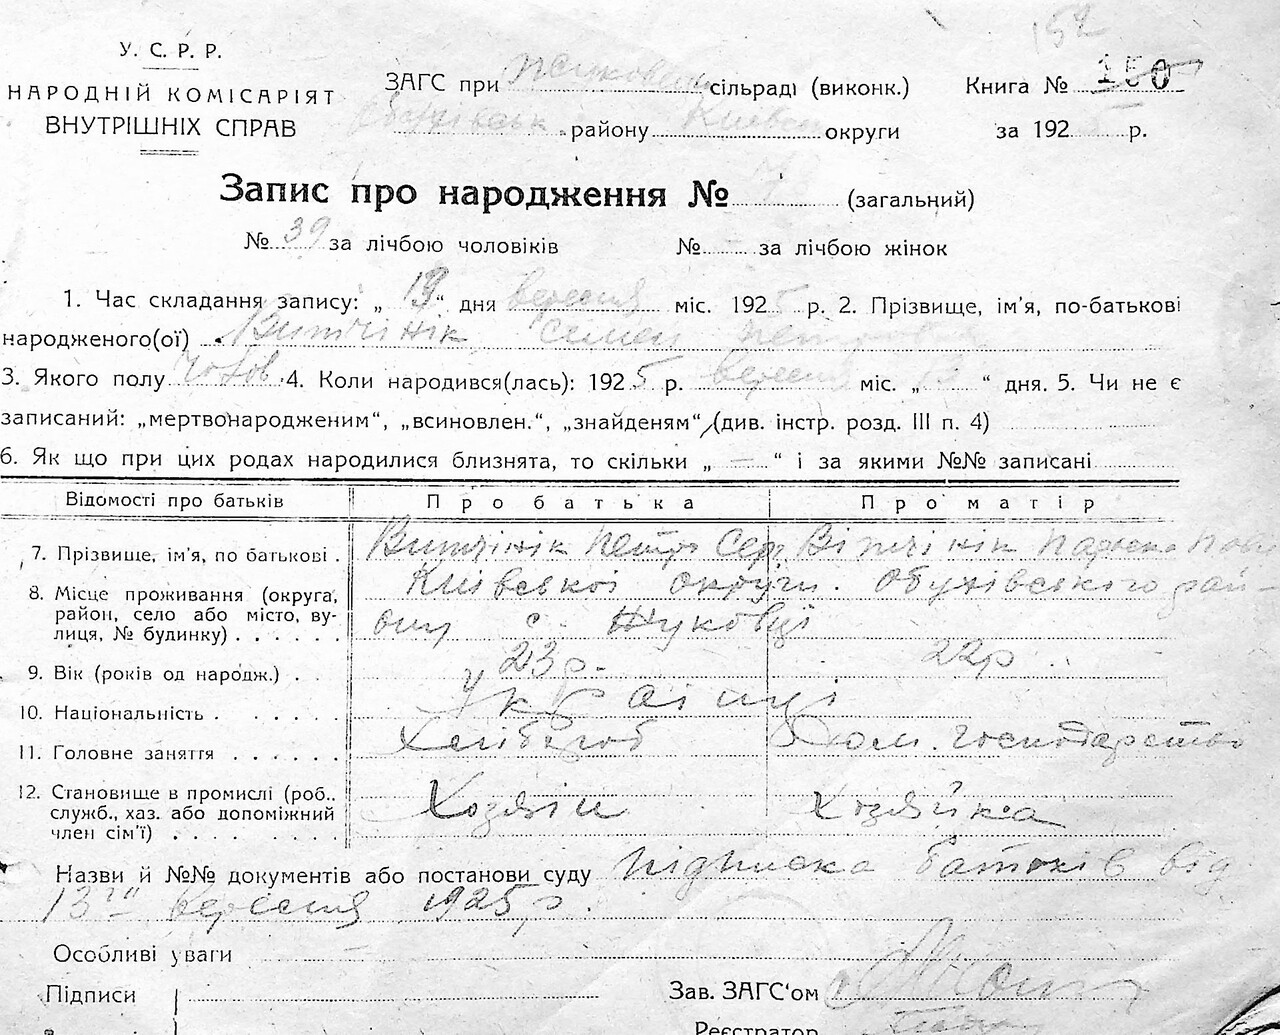 152
У. С. Р. Р.
НАРОДНІЙ КОМІСАРІЯТ
ВНУТРІШНІХ СПРАВ
ЗАГС при сільраді (виконк.) Книга № 150
району Київськ округи за 1925 р.
Запис про народження № (загальний)
№ 39 за лічбою чоловіків № - за лічбою жінок
1. Час складання запису: „ 13 “ дня вересня міс. 1925 р. 2. Прізвище, ім'я, по-батькові
народженого(ої) Витчінік Семен Петрович
3. Якого полу чолов 4. Коли народився(лась): 1925 р. вересня міс. „ 13 “ дня. 5. Чи не є
записаний: „мертвонародженим“, „всиновлен.“, „знайденям“ (див. інстр. розд. III п. 4)
6. Як що при цих родах народилися близнята, то скільки „ — “ і за якими №№ записані
Відомості про батьків Про батька Про матір
7. Прізвище, ім'я, по батькові . Витчінік Петро Сер. Вітчінік Параска
8. Місце проживання (округа, Київської округи. Обухівського рай-
район, село або місто, ву- ону с. Жуковці
лиця, № будинку) . . . . .
9. Вік (років од народж.) . . 23 р. 22 р.
10. Національність . . . . . . українці
11. Головне заняття . . . . . . Хлібороб Дом. господарство
12. Становище в промислі (роб., Хозяін Хозяйка
служб., хаз. або допоміжний
член сім'ї) . . . . . . . .
Назви й №№ документів або постанови суду підписка батьків від
13го вересня 1925 р.
Особливі уваги
Підписи Зав. ЗАГС'ом
Реєстратор